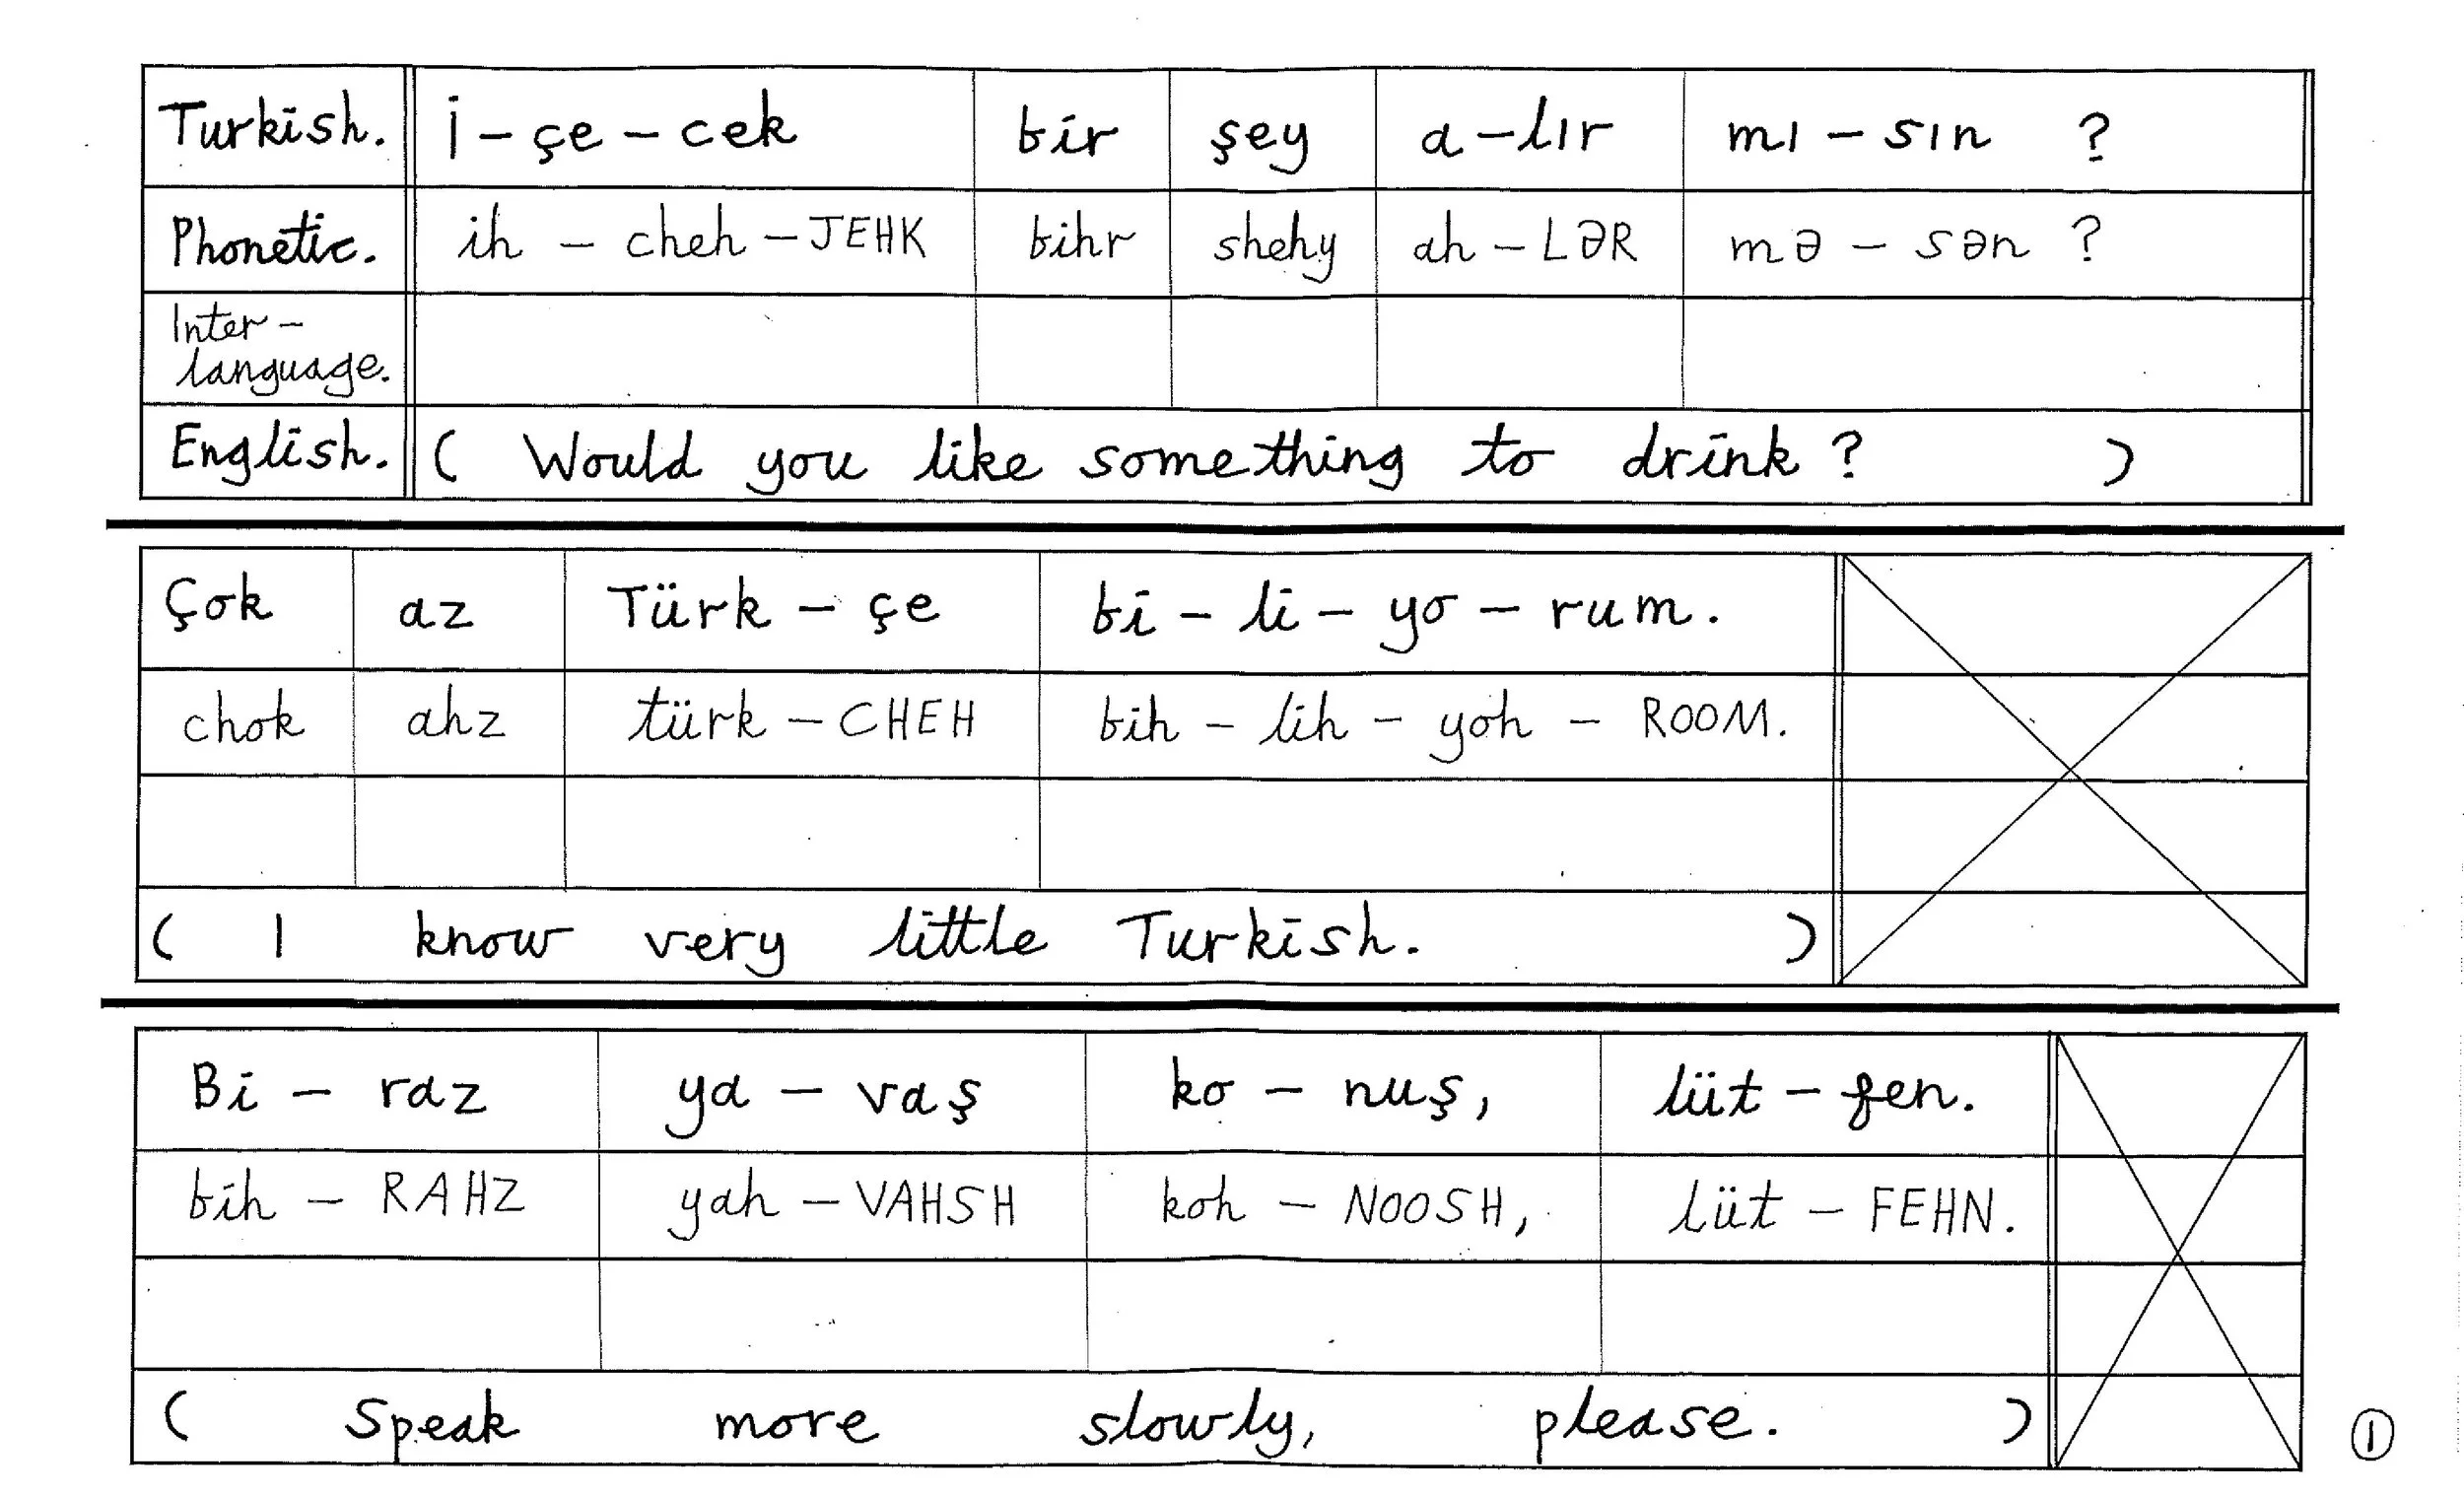 Turkish. İ - çe - cek bir şey a - lır mı - sın ?
Phonetic. ih - cheh - JEHK bihr shehy ah - LƏR mə - sən ?
Inter -
language.
English. ( Would you like something to drink ? )
Çok az Türk - çe bi - li - yo - rum.
chok ahz türk - CHEH bih - lih - yoh - ROOM.
( I know very little Turkish. )
Bi - raz ya - vaş ko - nuş, lüt - fen.
bih - RAHZ yah - VAHSH koh - NOOSH, lüt - FEHN.
( Speak more slowly, please. )
1